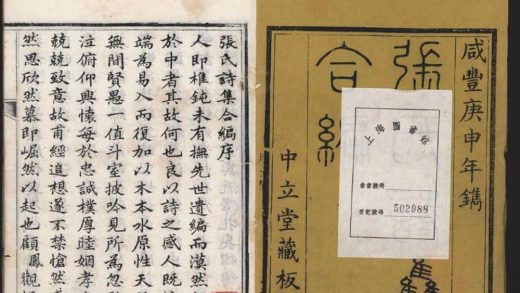 咸豐庚申年鐫
張
合編
中立堂藏板
上海圖書館
索書號碼
登記號碼 502988
張氏詩集合編序
人即椎鈍未有撫先世遺編而漠然
於中者其故何也良以詩之感人既
端為易入而復加以木本水原性天
無間賢愚一值斗室披吟見所為忽
泣俯仰興懷每於忠誠樸厚睦姻孝
競競致意故甫經追想遂不禁愴然
然思欣然慕即崛然以起也顧鳳觀